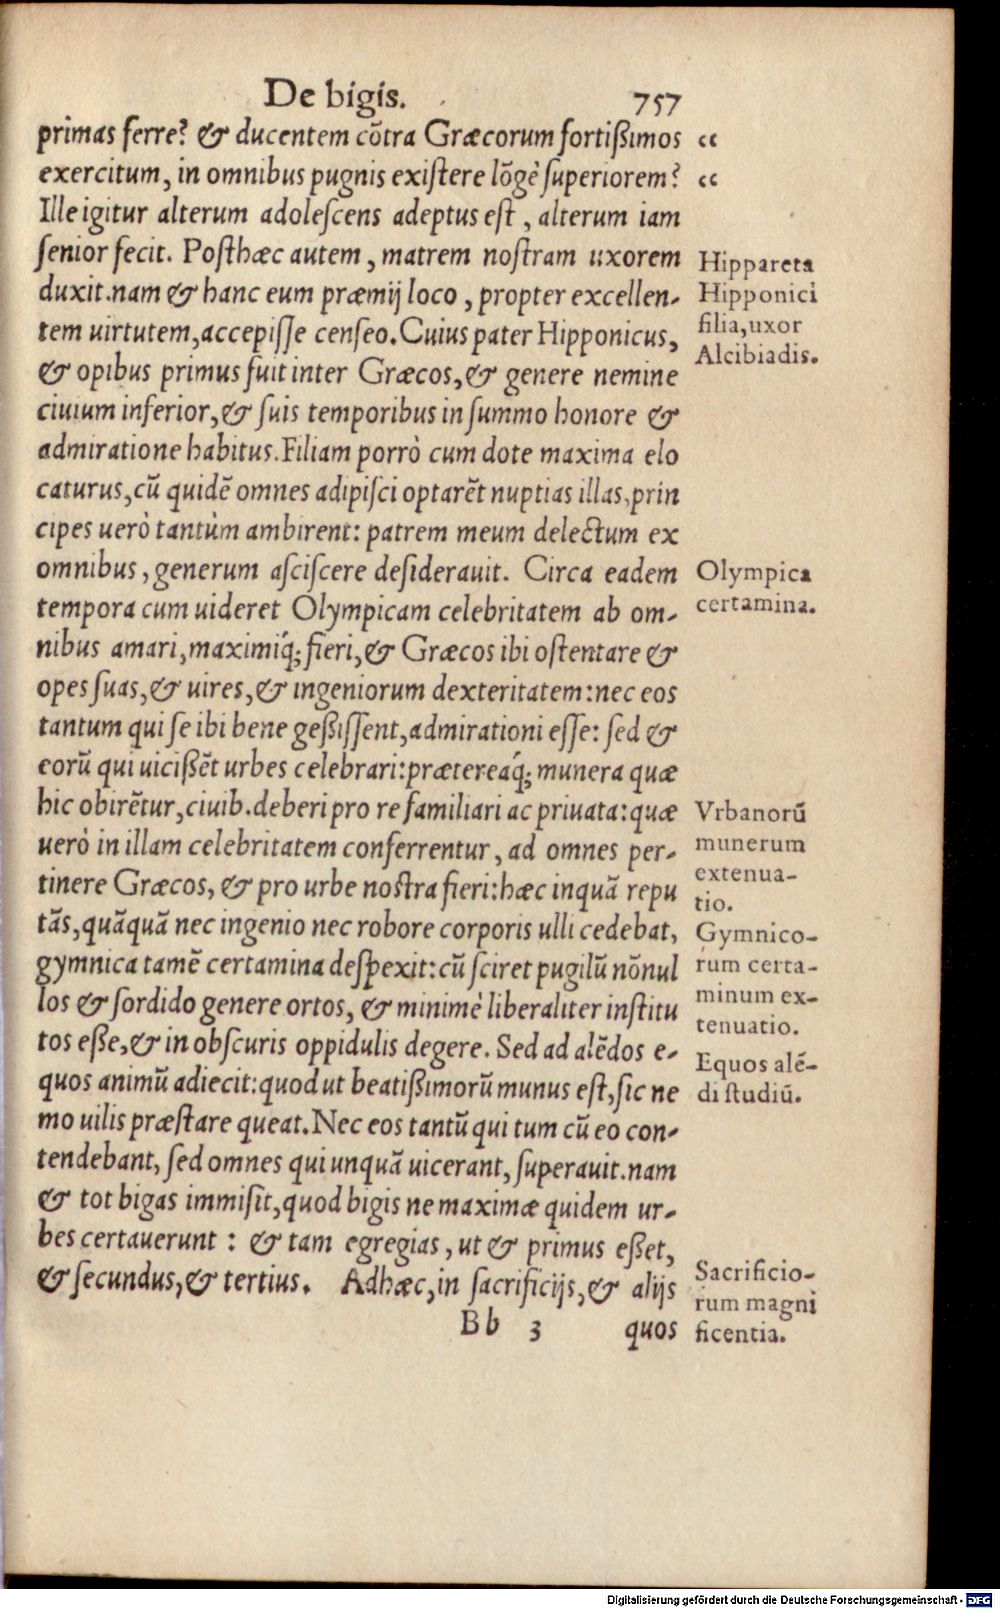 De bigis. 757
primas ferre? & ducentem cōtra Græcorum fortißimos
exercitum, in omnibus pugnis exiſtere lōgè ſuperiorem?
Ille igitur alterum adoleſcens adeptus eſt, alterum iam
ſenior fecit. Poſthæc autem, matrem noſtram uxorem
duxit.nam & hanc eum præmij loco, propter excellen-
tem uirtutem, accepiſſe cenſeo. Cuius pater Hipponicus,
& opibus primus fuit inter Græcos, & genere nemine
ciuium inferior, & ſuis temporibus in ſummo honore &
admiratione habitus. Filiam porrò cum dote maxima elo
caturus, cū quidē omnes adipiſci optarēt nuptias illas, prin
cipes uerò tantùm ambirent: patrem meum delectum ex
omnibus, generum aſciſcere deſiderauit. Circa eadem
tempora cum uideret Olympicam celebritatem ab om-
nibus amari, maximiq́; fieri, & Græcos ibi oſtentare &
opes ſuas, & uires, & ingeniorum dexteritatem: nec eos
tantum qui ſe ibi bene geßiſſent, admirationi eſſe: ſed &
eorū qui uicißēt urbes celebrari: prætereaq́; munera quæ
hic obirētur, ciuib. deberi pro re familiari ac priuata: quæ
uerò in illam celebritatem conferrentur, ad omnes per-
tinere Græcos, & pro urbe noſtra fieri: hæc inquā repu
tās, quāquā nec ingenio nec robore corporis ulli cedebat,
gymnica tamē certamina deſpexit: cū ſciret pugilū nōnul
los & ſordido genere ortos, & minimè liberaliter inſtitu
tos eße, & in obſcuris oppidulis degere. Sed ad alēdos e-
quos animū adiecit: quod ut beatißimorū munus eſt, ſic ne
mo uilis præſtare queat. Nec eos tantū qui tum cū eo con-
tendebant, ſed omnes qui unquā uicerant, ſuperauit. nam
& tot bigas immiſit, quod bigis ne maximæ quidem ur-
bes certauerunt: & tam egregias, ut & primus eßet,
& ſecundus, & tertius. Adhæc, in ſacrificijs, & alijs
Bb 3 quos
“
“
Hippareta
Hipponici
filia, uxor
Alcibiadis.
Olympica
certamina.
Vrbanorū
munerum
extenua-
tio.
Gymnico-
rum certa-
minum ex-
tenuatio.
Equos alē-
di ſtudiū.
Sacrificio-
rum magni
ficentia.
Digitalisierung gefördert durch die Deutsche Forschungsgemeinschaft - DFG